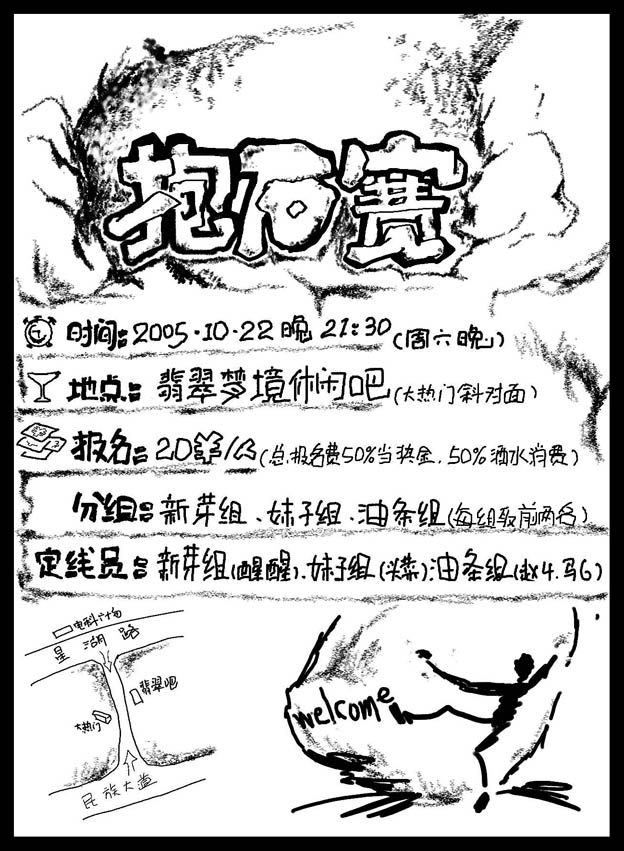 抱石赛
时间: 2005·10·22 晚 21:30 (周六晚)
地点: 翡翠梦境休闲吧 (大热门斜对面)
报名: 20¥/人 (总报名费50%当奖金.50%酒水消费)
分组: 新芽组、妹子组、油条组 (每组取前两名)
定线员: 新芽组(醒醒)、妹子组()油条组(赵4.马6)
电科广场
星湖路
翡翠吧
大热门
民族大道
welcome